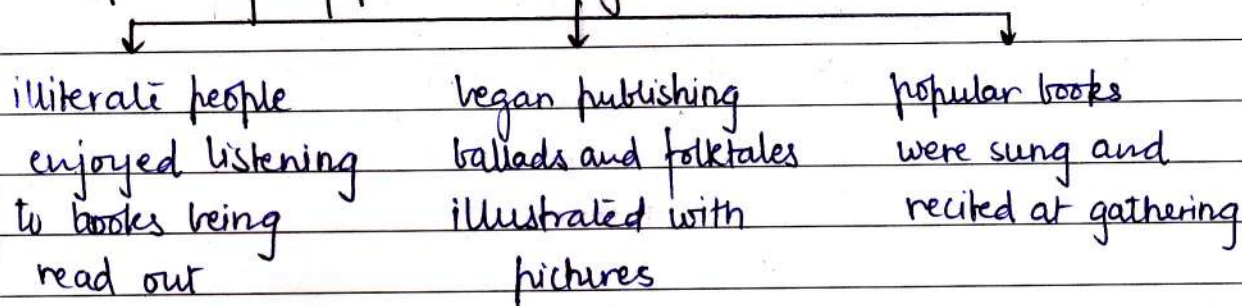 illiterate people
enjoyed listening
to books being
read out
began publishing
ballads and folktales
illustrated with
pictures
popular books
were sung and
recited at gathering